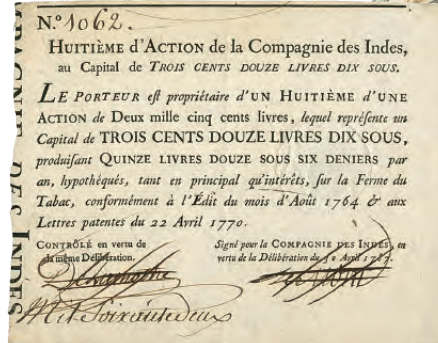 N.º 1062.
HUITIÈME d'ACTION de la Compagnie des Indes,
au Capital de TROIS CENTS DOUZE LIVRES DIX SOUS.
LE PORTEUR eſt propriétaire d'UN HUITIÈME D'UNE
ACTION de Deux mille cinq cents livres, lequel repréſente un
Capital de TROIS CENTS DOUZE LIVRES DIX SOUS,
produiſant QUINZE LIVRES DOUZE SOUS SIX DENIERS par
an, hypothéqués, tant en principal qu'intérêts, ſur la Ferme du
Tabac, conformément à l'Édit du mois d'Août 1764 & aux
Lettres patentes du 22 Avril 1770.
CONTRÔLÉ en vertu de
la même Délibération.
Signé pour la COMPAGNIE DES INDES, en
vertu de la Délibération du Avril
Mil Soixante deux
DES INDES